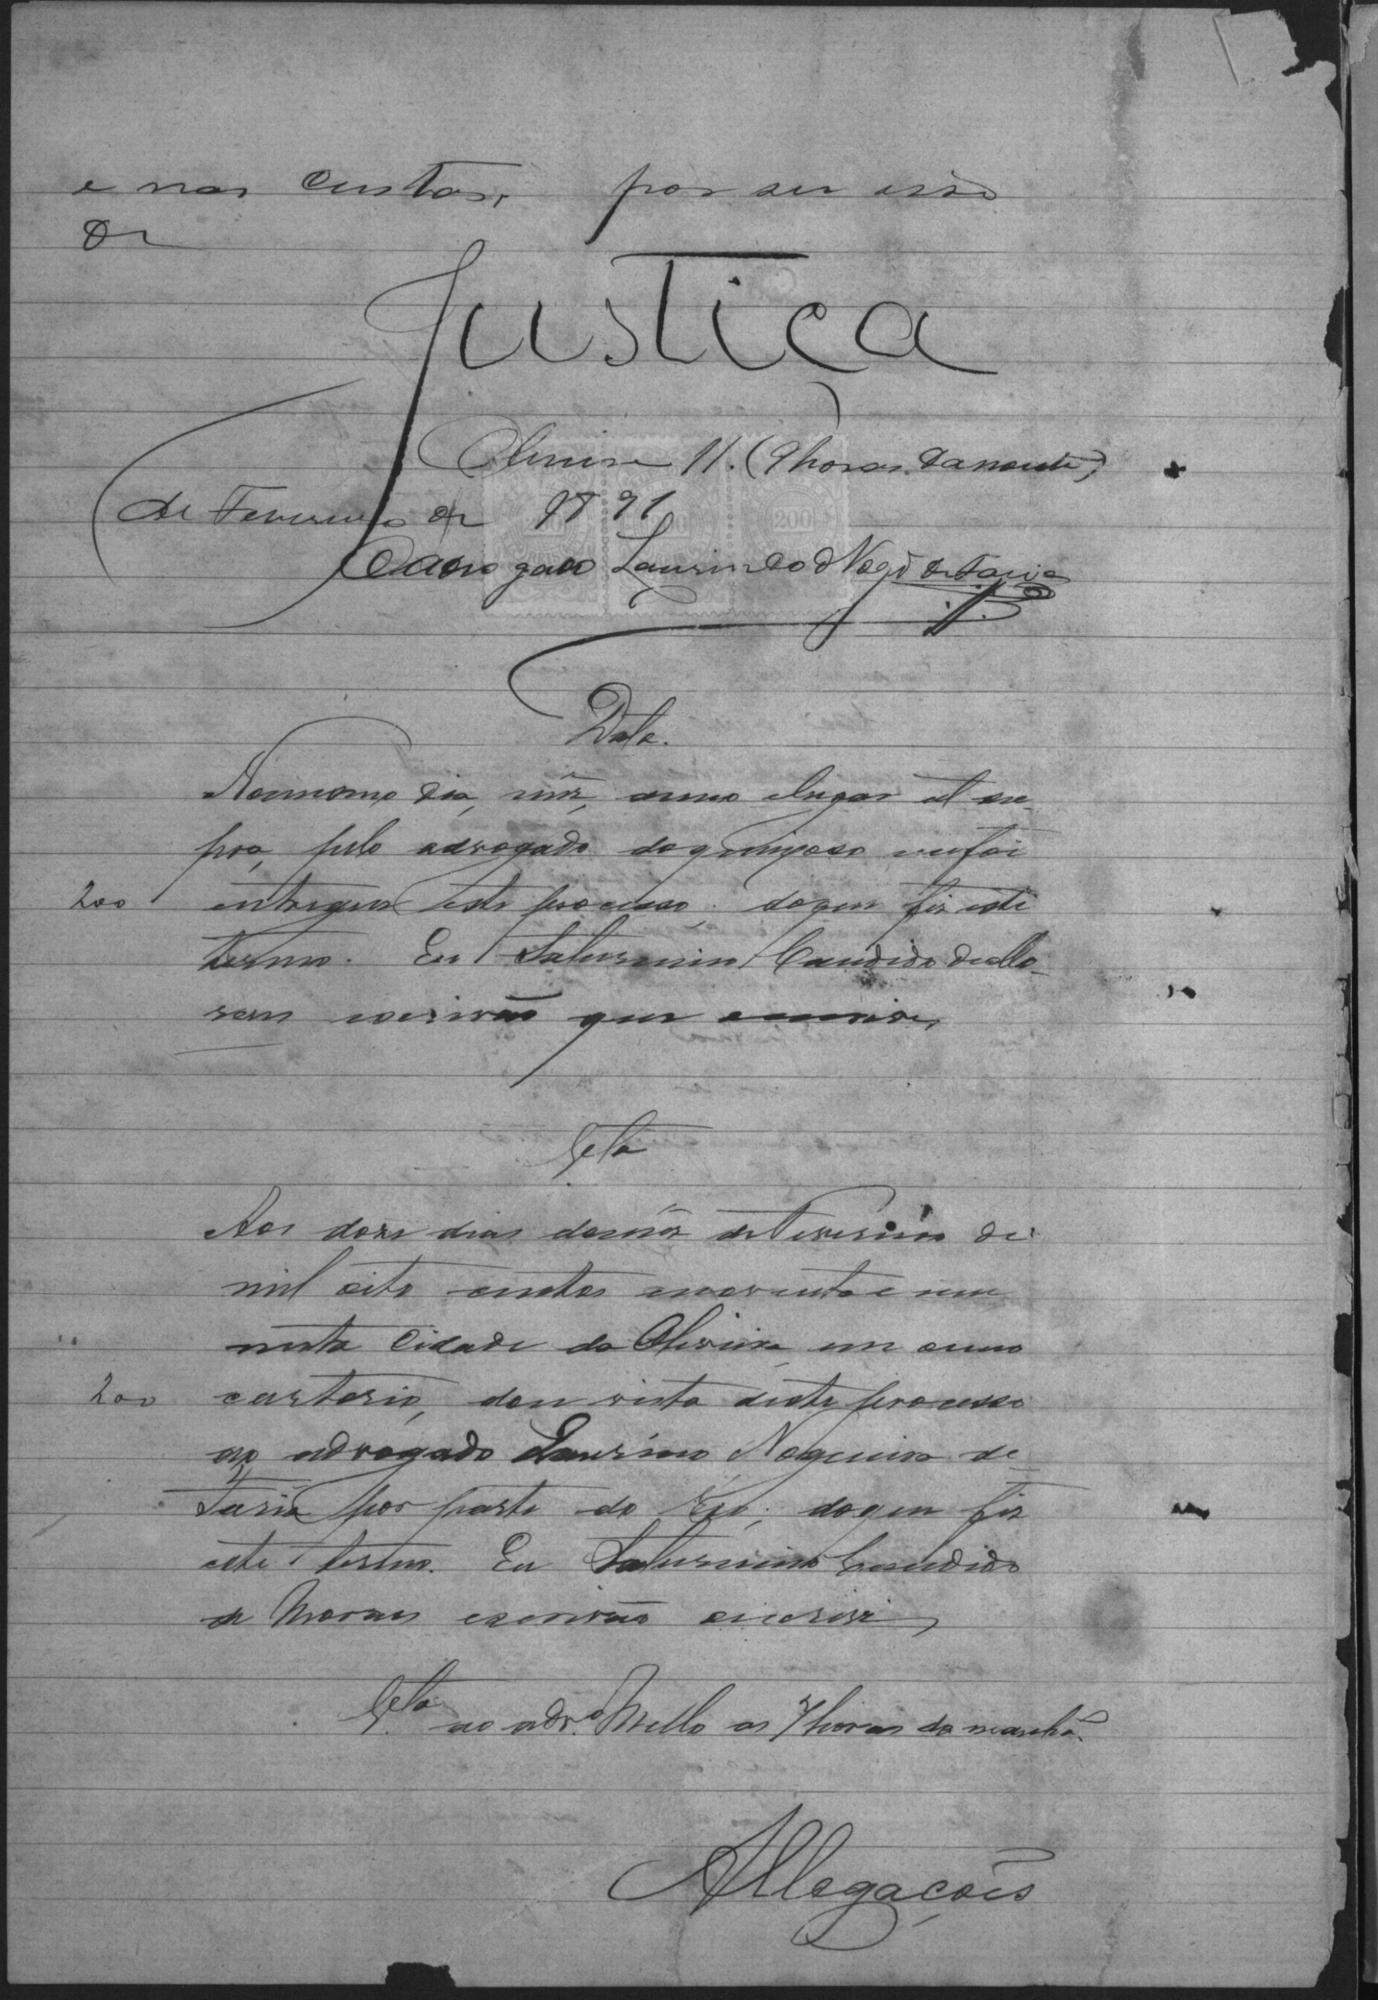 e nas custas, por ser isso
de
Justiça
Oliveira 11. (9 horas da noute)
de Fevereiro de 1891
O advogado Laurindo Nogr.ª de Faria
200 200 200
Data.
No mesmo dia, mêz, anno e lugar
pra, pelo advogado do queixoso me foi
200 entregue este processo; do que fiz este
termo. Eu Saturnino Candido de Mo-
raes escrivão que escrevi,
V.ta
Aos doze dias do mêz de Fevereiro de
mil oito centos e noventa e um
nesta Cidade da Oliveira, em
200 cartorio, dou vista deste processo
ao advogado Nogueira de
Faria por parte do Réo; do que fiz
este termo. Eu Saturnino Candido
de Moraes escrivão escrevi,
V.ta ao adv.º Mello as 7 horas da manhã.
Allegações